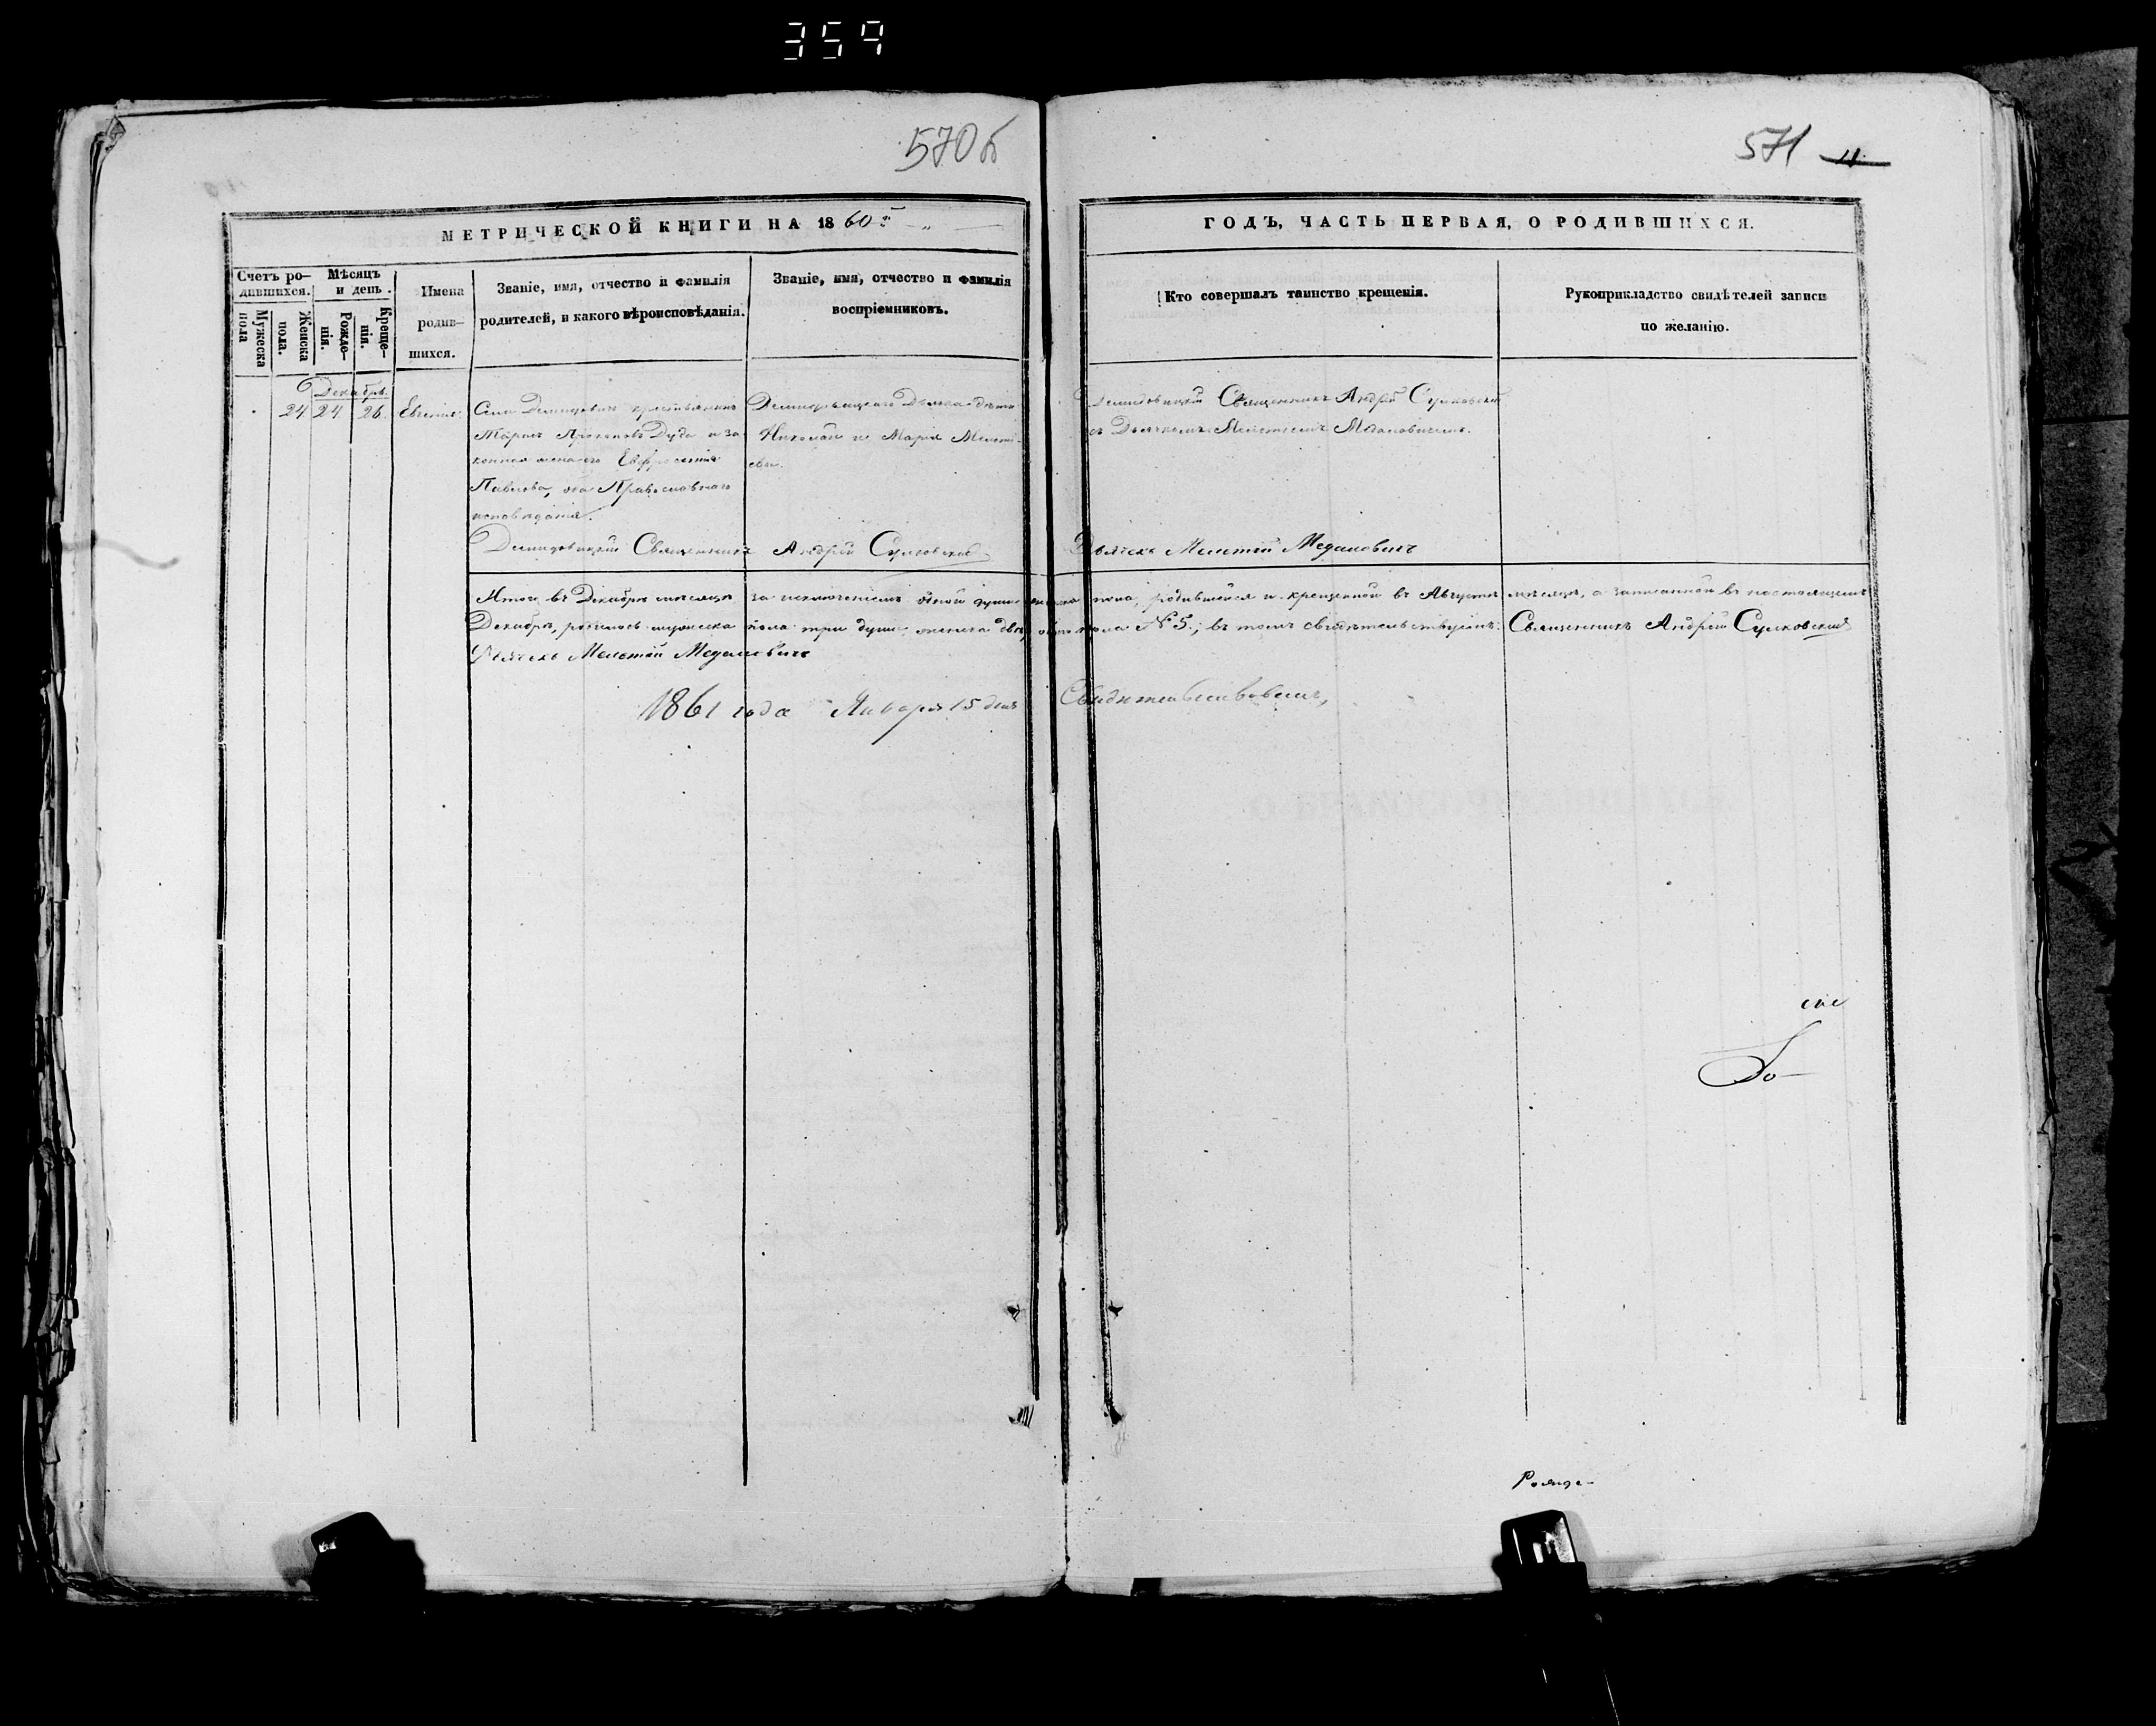 359
570 б
571 11
МЕТРИЧЕСКОЙ КНИГИ НА 1860й
ГОДЪ, ЧАСТЬ ПЕРВАЯ, О РОДИВШИХСЯ.
Счетъ ро-
дившихся.
Мужеска
пола
Женска
пола.
Мѣсяцъ
и день.
Рожде-
нія.
Креще-
нія.
Имена
родив-
шихся.
Званіе, имя, отчество и фамилія
родителей, и какого вѣроисповѣданія.
Званіе, имя, отчество и фамилія
воспріемниковъ.
Кто совершалъ таинство крещенія.
Рукоприкладство свидѣтелей записи
по желанію.
Декабрь.
24 24 26. Евгенія
Села Демидовки крестьянинъ
Прокоповъ Дуда и за-
конная жена его Евфросинія
Павлова, оба Православнаго
исповѣданія.
Дьячка дѣти
Николай и Марія Мелеті-
евы.
Священникъ Андрей Сулковскій
съ Дьячкомъ Мелетіемъ
Священникъ Андрей Сулковскій
Дьячекъ Мелетій
Итого въ Декабрѣ мѣсяцѣ за исключеніемъ одной души женска пола, родившейся и крещенной въ Августѣ мѣсяцѣ, а записанной въ настоящемъ
Декабрѣ, родилось мужеска пола три души, женска двѣ, обоего пола № 5.; въ томъ свидѣтельствуемъ: Священникъ Андрей Сулковскій
Дьячекъ Мелетій
1861 года Января 15 дня Свидѣтельствовалъ,